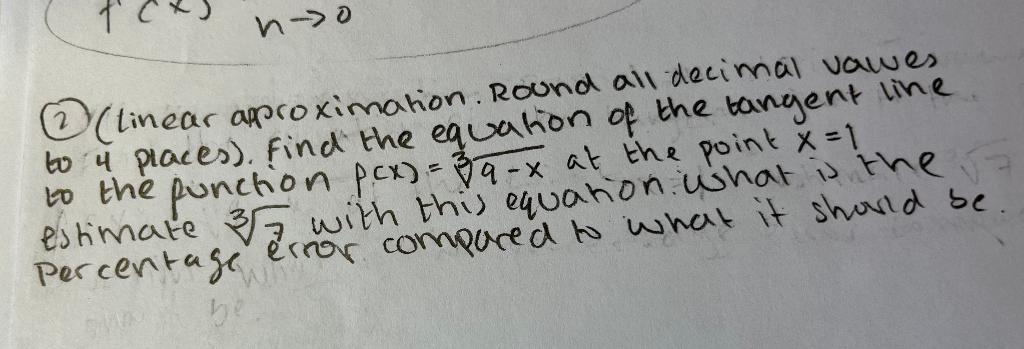 f(x)
n→0
② (linear approximation. Round all decimal values
to 4 places). find the equation of the tangent line
to the function f(x) = ∛9-x at the point x = 1
estimate ∛7 with this equation. what is the
percentage error compared to what it should be.
be